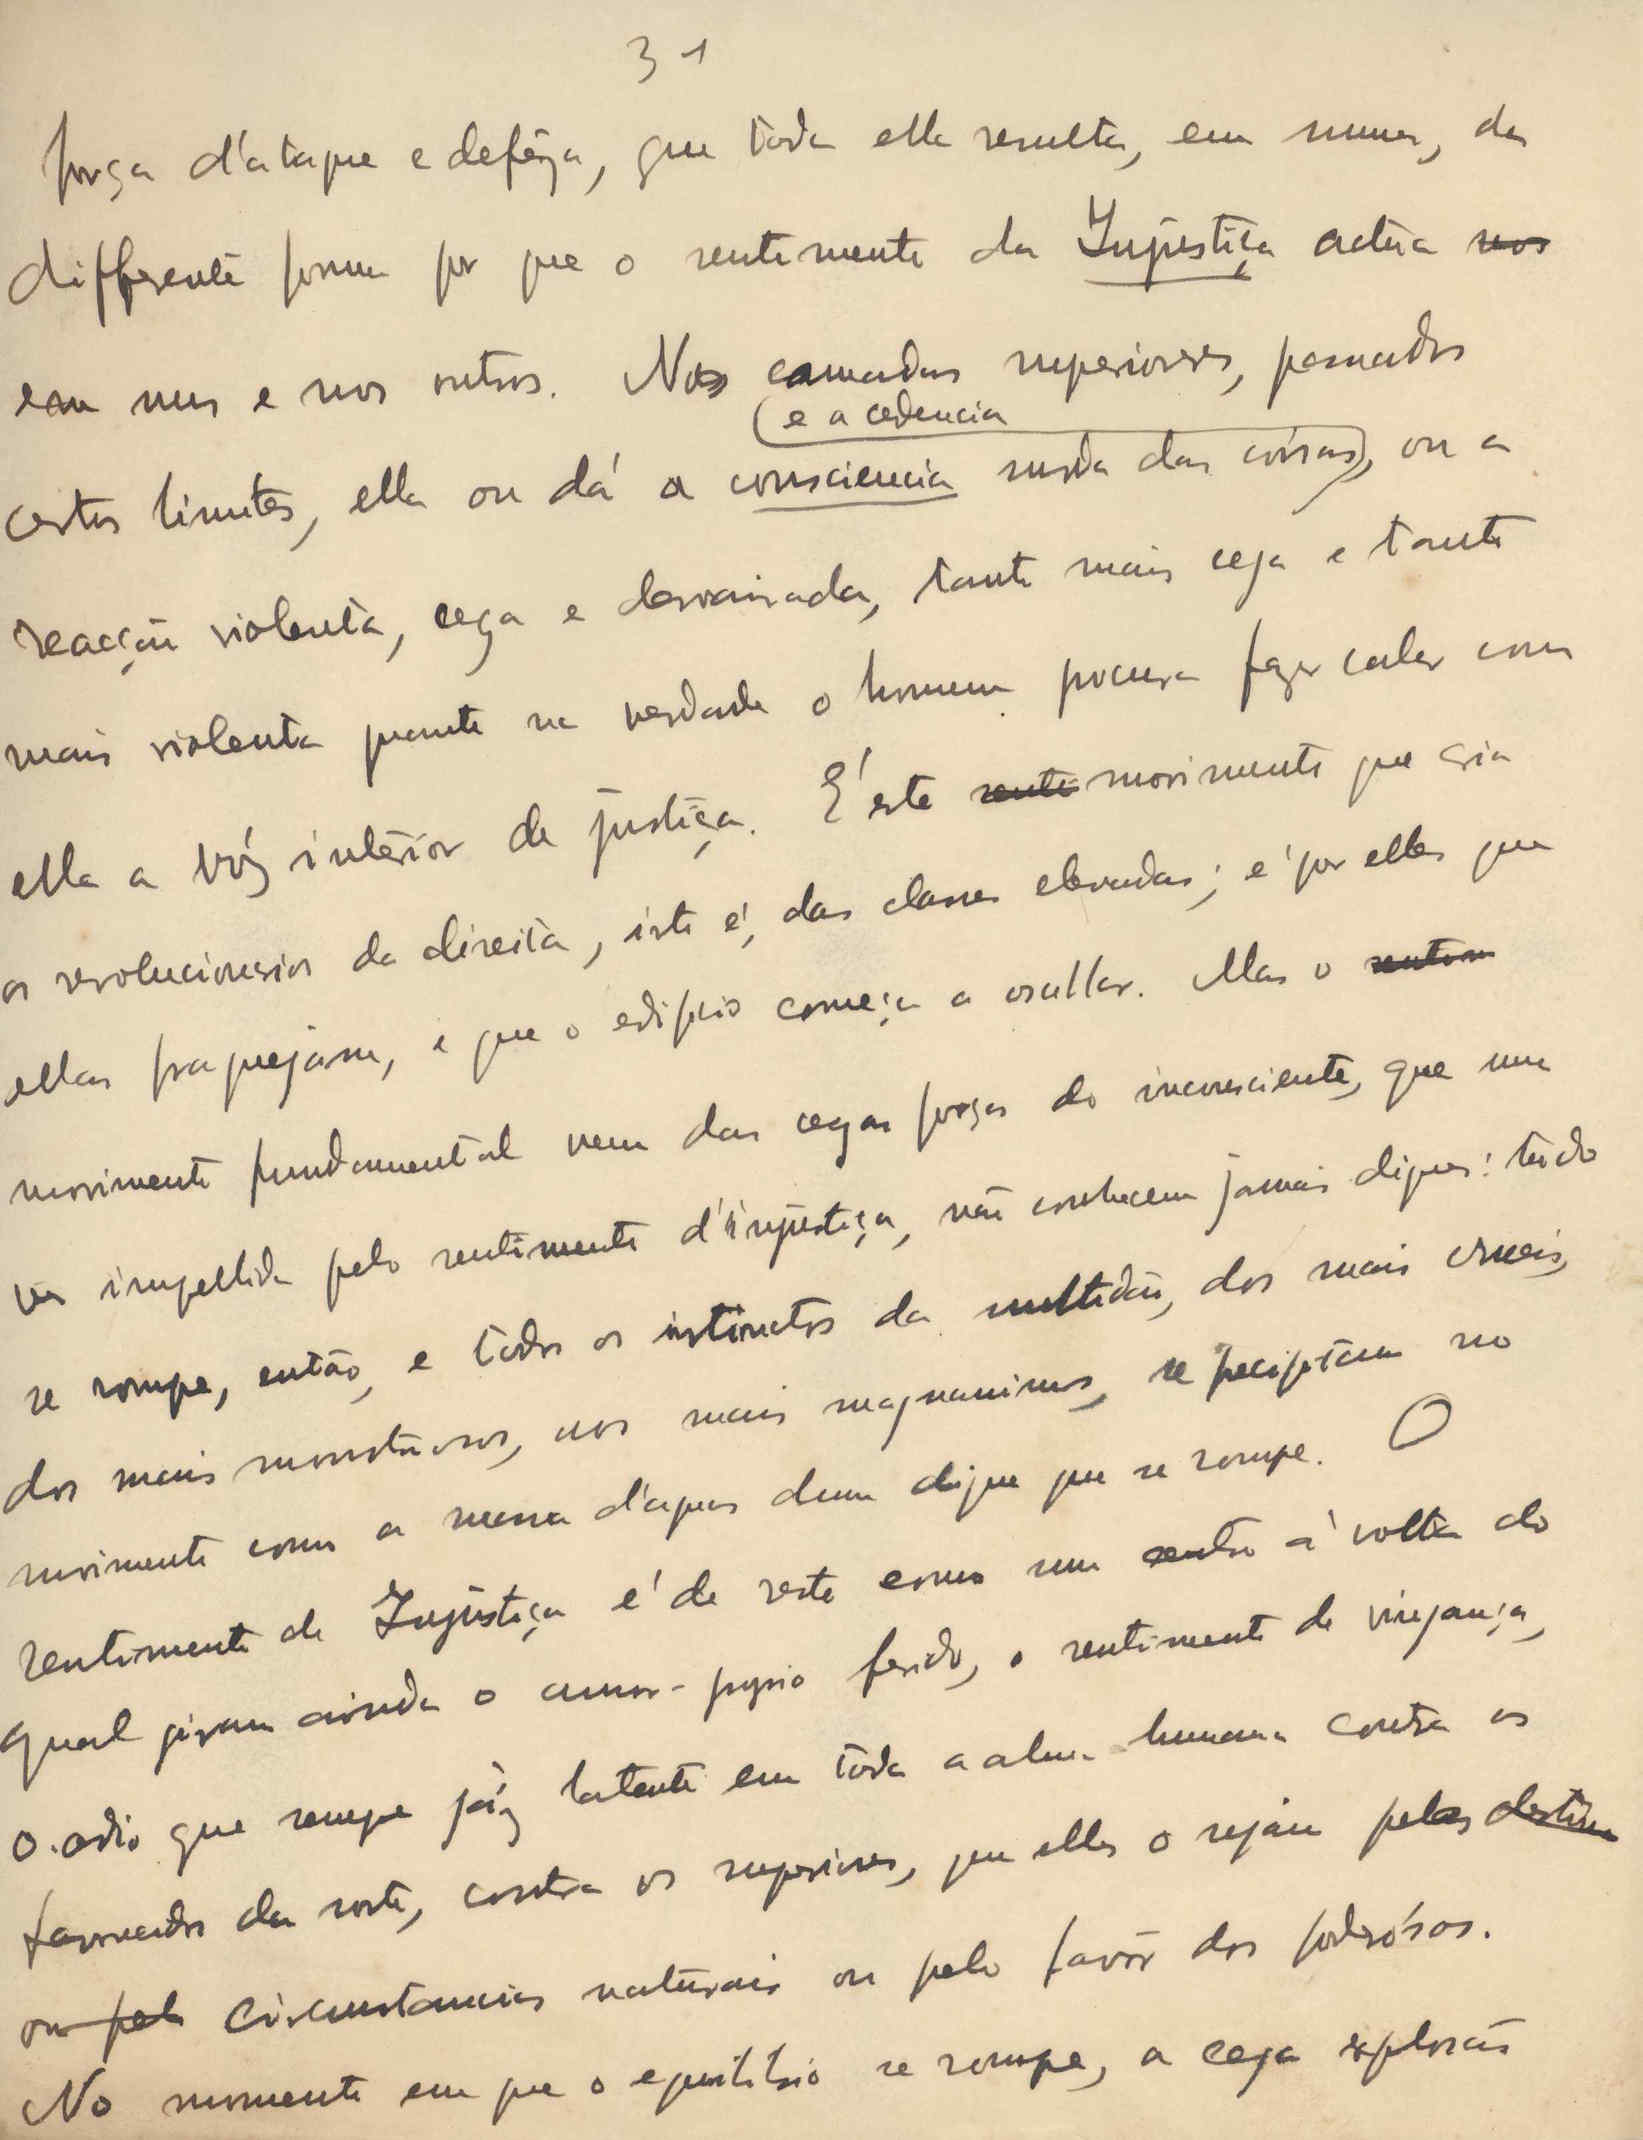 31
força d'ataque e defêza, que toda ella resulta, em summa, da
differente forma por que o sentimento da Injustiça actúa nos
em uns e nos outros. Nas camadas superiores, passados
e a cedencia
certos limites, ella ou dá a consciencia surda das coisas, ou a
reacção violenta, cega e desvairada, tanto mais cega e tanto
mais violenta quanto na verdade o homem procura fazer calar com
ella a vóz interior de justiça. É este senti movimento que cria
os revolucionarios da direita, isto é, das classes elevadas; e é por elles que
ellas fraquejam, e que o edificio começa a oscillar. Mas o
movimento fundamental vem das cegas forças do inconsciente, que uma
vez impellida pelo sentimento d'injustiça, não conhecem jamais diques: tudo
se rompe, então, e todos os instinctos da multidão, dos mais crueis,
dos mais monstruosos, aos mais magnanimos, se precipitam no
movimento como a massa d'aguas dum dique que se rompe. O
sentimento de Injustiça é de resto como um centro á volta do
qual giram ainda o amor-proprio ferido, o sentimento de vingança,
o odio que sempre jáz latente em toda a alma humana contra os
favorecidos da sorte, contra os superiores, que elles o sejam pelas destino
ou pela circunstancias naturais ou pelo favôr dos poderósos.
No momento em que o equilibrio se rompe, a cega explosão